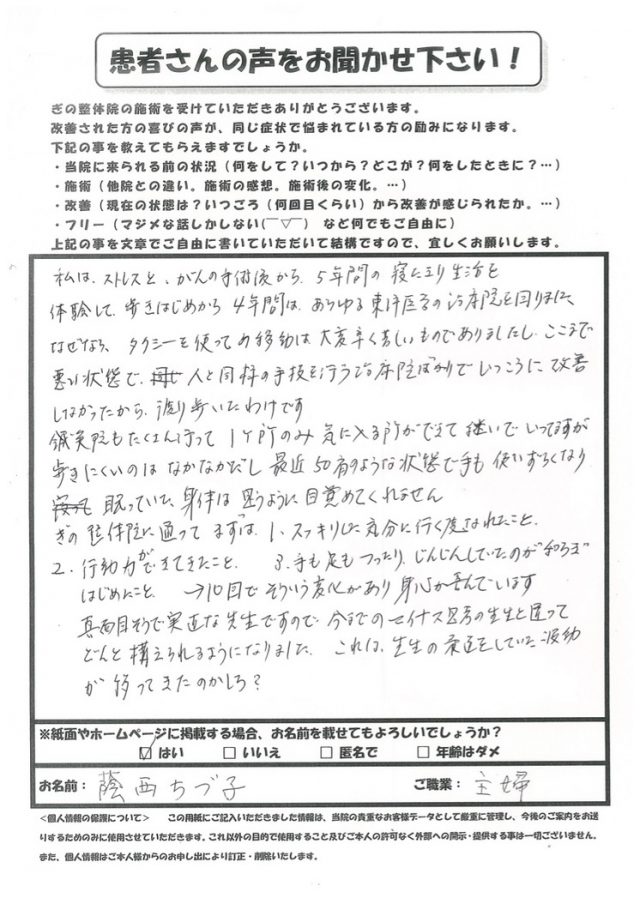 患者さんの声をお聞かせ下さい！
ぎの整体院の施術を受けていただきありがとうございます。
改善された方の喜びの声が、同じ症状で悩まれている方の励みになります。
下記の事を教えてもらえますでしょうか。
・当院に来られる前の状況（何をして？いつから？どこが？何をしたときに？…）
・施術（他院との違い。施術の感想。施術後の変化。…）
・改善（現在の状態は？いつごろ（何回目くらい）から改善が感じられたか。…）
・フリー（マジメな話しかしない(￣▽￣) など何でもご自由に）
上記の事を文章でご自由に書いていただいて結構ですので、宜しくお願いします。
私は、ストレスと、がんの手術後から、5年間の寝たきり生活を
体験して、歩きはじめから4年間は、あらゆる東洋医学の治療院を回りました
なぜなら、タクシーを使っての移動は大変辛く苦しいものでありましたし、ここまで
悪い状態で、人と同様の手技を行う治療院ばかりでいっこうに改善
しなかったから、渡り歩いたわけです
鍼灸院もたくさん行って 1ヶ所のみ気に入る所ができて継いでいってますが
歩きにくいのはなかなかだし 最近50肩のような状態で手も使いずらくなり
眠っていた身体は思うように目覚めてくれません
ぎの整体院に通って まずは、1、スッキリした気分に行く度なれたこと、
2、行動力ができてきたこと、 3、手も足もつったり、じんじんしていたのが和らぎ
はじめたこと、 →10回でそういう変化があり身心が喜んでいます
真面目そうで実直な先生ですので、今までのマイナス思考の生と違って
どんと構えられるようになりました、これは、先生の柔道をしていた波動
が移ってきたのかしら？
※紙面やホームページに掲載する場合、お名前を載せてもよろしいでしょうか？
☑ はい □ いいえ □ 匿名で □ 年齢はダメ
お名前： 蔭西ちづ子 ご職業： 主婦
＜個人情報の保護について＞ この用紙にご記入いただきました情報は、当院の貴重なお客様データとして厳重に管理し、今後のご案内をお送
りするためのみに使用させていただきます。これ以外の目的で使用すること及びご本人の許可なく外部への開示・提供する事は一切ございません。
また、個人情報はご本人様からのお申し出により訂正・削除いたします。